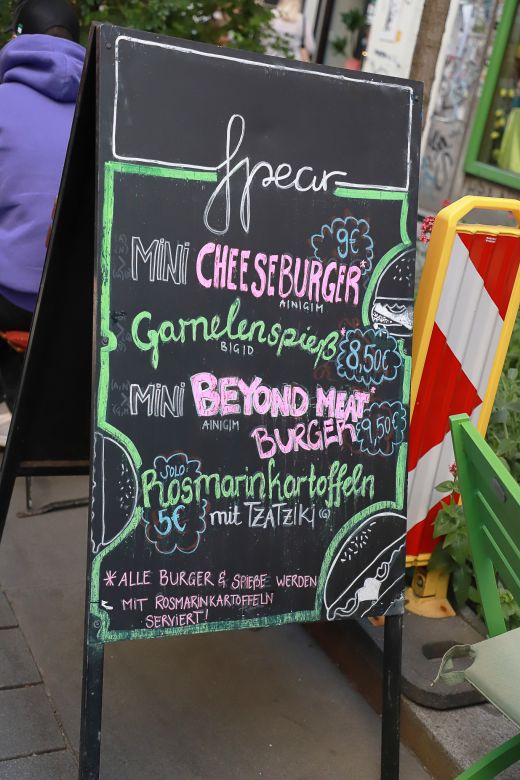 Spear
9€
MiNi CHEESEBURGER*
A|N|G|M
Garnelenspieß*
B|G|D
8,50€
MiNi BEYOND MEAT*
A|N|G|M
BURGER
9,50€
SOLO
Rosmarinkartoffeln
5€
mit TZATZIKI G
*ALLE BURGER & SPIEßE WERDEN
MIT ROSMARINKARTOFFELN
SERVIERT!